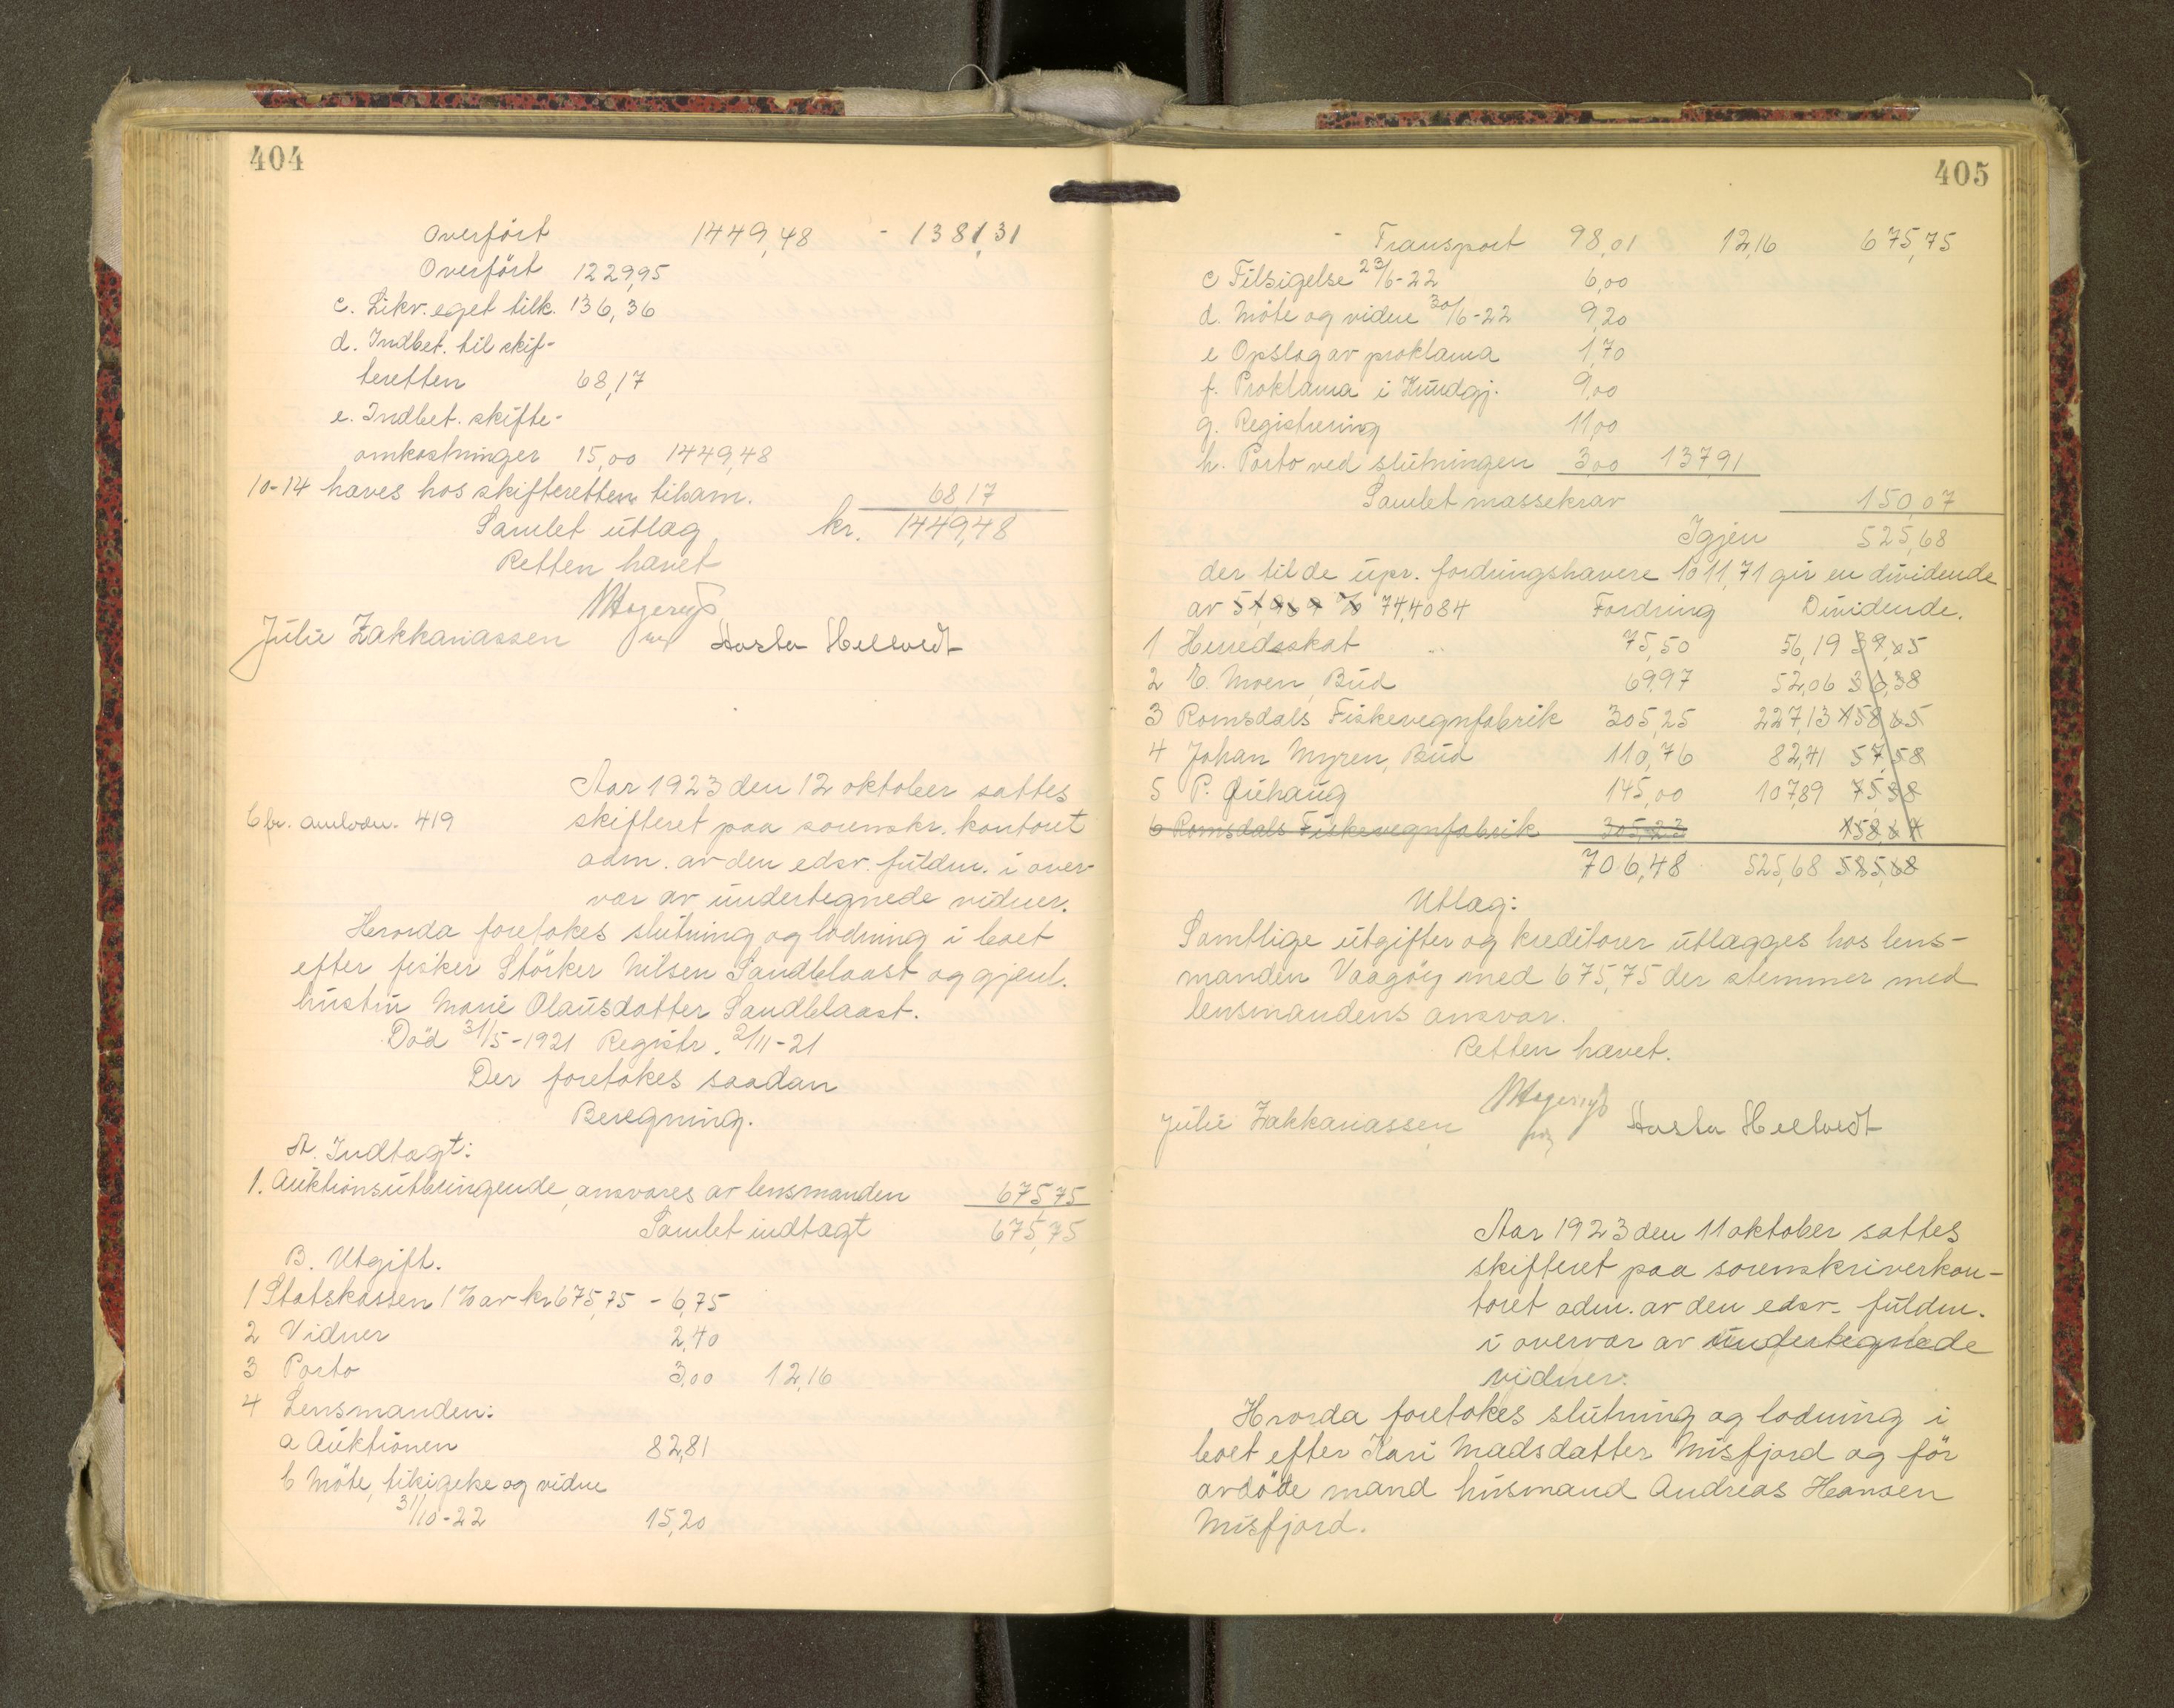 404
Overført 1449,48 - 1381,31
Overført 1229,95
c. Likv. eget tilk. 136,36
d. Indbet. til skif-
teretten 68,17
e. Indbet. skifte-
omkostninger 15,00 1449,48
10-14 haves hos skifteretten tilsam. 68,17
Samlet utlæg kr. 1449,48
Retten hævet
Julie Zakkariassen Aasta Hellvedt
Aar 1923 den 12 oktober sattes
skifteret paa sorenskr. kontoret
adm. av den edsv. fuldm. i over-
vær av undertegnede vidner.
419
Hvorda foretokes slutning og lodning i boet
efter fisker Størker Nilsen Sandblaast og gjenl.
hustru Marie Olausdatter Sandblaast.
Død 31/5-1921 Registr. 2/11-21
Der foretokes saadan
Beregning.
A. Indtægt:
1. Auktionsutbringende, ansvares av lensmanden 675,75
Samlet indtægt 675,75
B. Utgift.
1 Statskassen 1% av kr 675,75 - 6,75
2 Vidner 2,40
3 Porto 3,00 12,16
4 Lensmanden:
a Auktionen 82,81
b Møte, tilsigelse og vidne
31/10-22 15,20
405
Transport 98,01 12,16 675,75
c Tilsigelse 23/6-22 6,00
d. Møte og vidne 30/6-22 9,20
e Opslag av proklama 1,70
f. Proklama i Kundgj. 9,00
g. Registrering 11,00
h. Porto ved slutningen 3,00 137,91
Samlet massekrav 150,07
Igjen 525,68
der til de upr. fordringshavere 1011,71 gir en dividende
av 51,969 % 74,4084 Fordring Dividende.
1 Herredsskat 75,50 56,19 39,25
2 E. Moen, Bud 69,97 52,06 36,38
3 Romsdals Fiskevegnfabrik 305,25 227,13 158,65
4 Johan Myren, Bud 110,76 82,41 57,58
5 P. Quhaug 145,00 107,89 75,38
6 Romsdals Fiskevegnfabrik 305,23 158,64
706,48 525,68 525,68
Utlæg:
Samtlige utgifter og kreditorer utlægges hos lens-
manden Vaagøy med 675,75 der stemmer med
lensmandens ansvar.
Retten hævet.
Julie Zakkariassen Aasta Hellvedt
Aar 1923 den 11 oktober sattes
skifteret paa sorenskriverkon-
toret adm. av den edsv. fuldm.
i overvær av undertegnede
vidner.
Hvorda foretokes slutning og lodning i
boet efter Kari Madsdatter Misfjord og før
avdøde mand husmand Andreas Hansen
Misfjord.